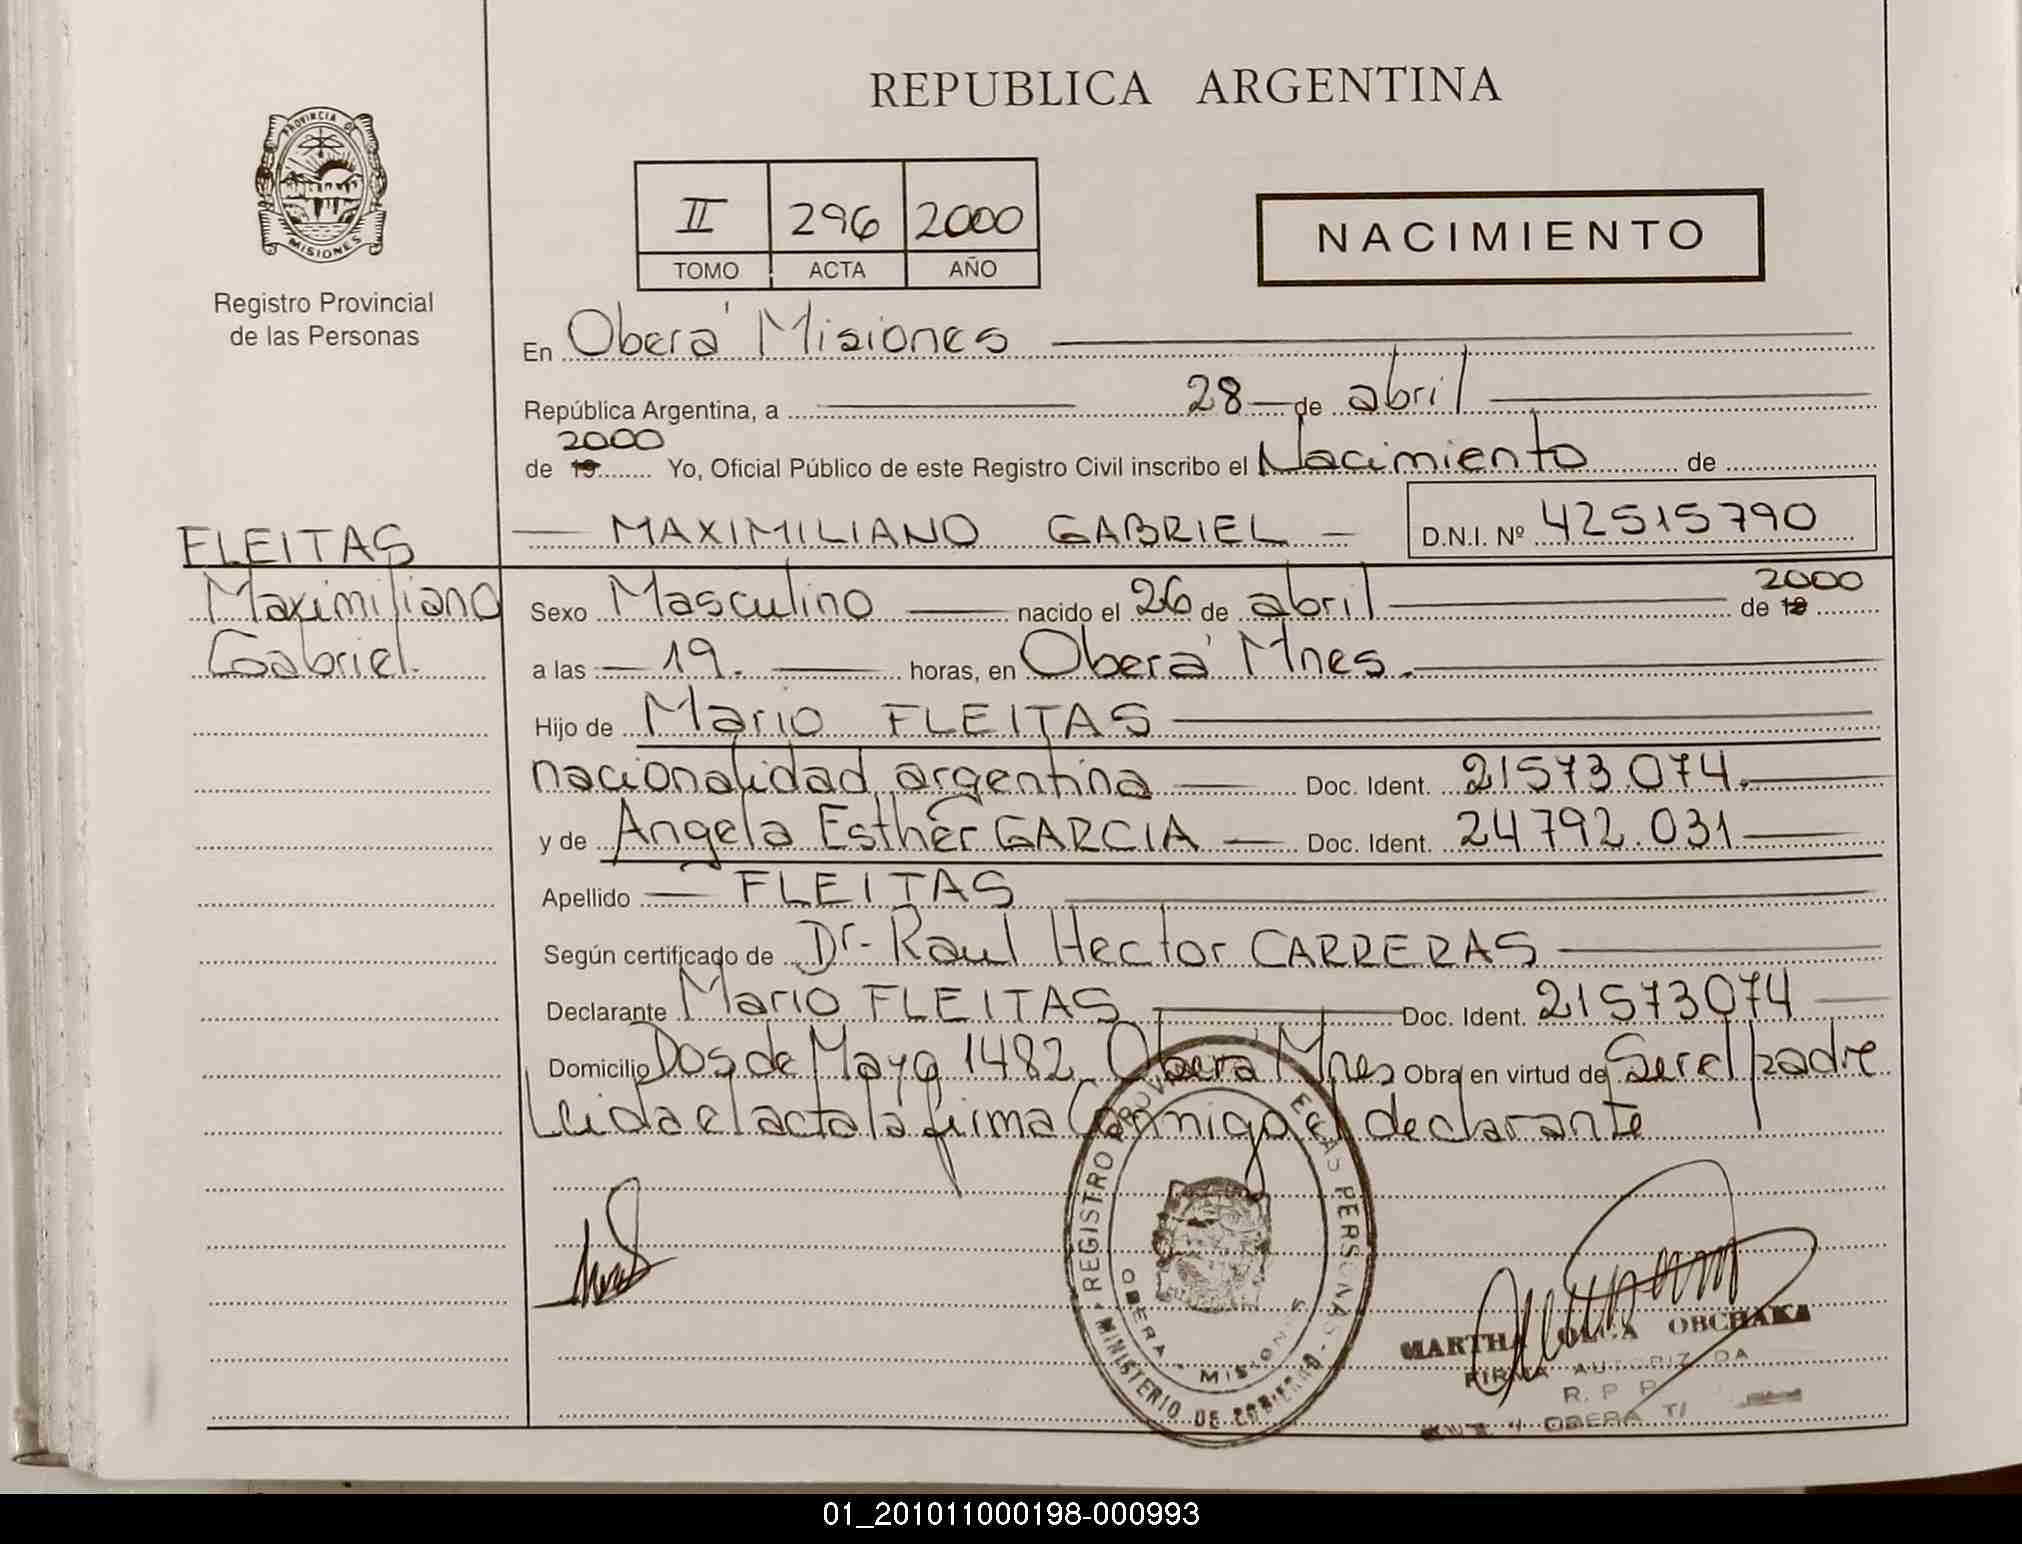 REPUBLICA ARGENTINA
PROVINCIA DE
MISIONES
Registro Provincial
de las Personas
II 296 2000
TOMO ACTA AÑO
NACIMIENTO
En Oberá Misiones
República Argentina, a 28 de abril
2000
de 19 Yo, Oficial Público de este Registro Civil inscribo el Nacimiento de
FLEITAS
Maximiliano
Gabriel.
MAXIMILIANO GABRIEL D.N.I. Nº 42515790
2000
Sexo Masculino nacido el 26 de abril de 19
a las 19. horas, en Oberá Mnes.
Hijo de Mario FLEITAS
nacionalidad argentina Doc. Ident. 21573.074.
y de Angela Esther GARCIA Doc. Ident. 24792.031
Apellido FLEITAS
Según certificado de Dr. Raul Hector CARRERAS
Declarante Mario FLEITAS Doc. Ident. 21573074
Domicilio Dos de Mayo 1482 Oberá Mnes Obra en virtud de Ser el padre
Leida el acta la firma Conmigo el declarante
REGISTRO PROV DE LAS PERSONAS
MINISTERIO DE GOBIERNO
OBERA MISIONES
MARTHA OLGA OBCHAKA
FIRMA AUTORIZADA
R. P. P.
OBERA
01_201011000198-000993